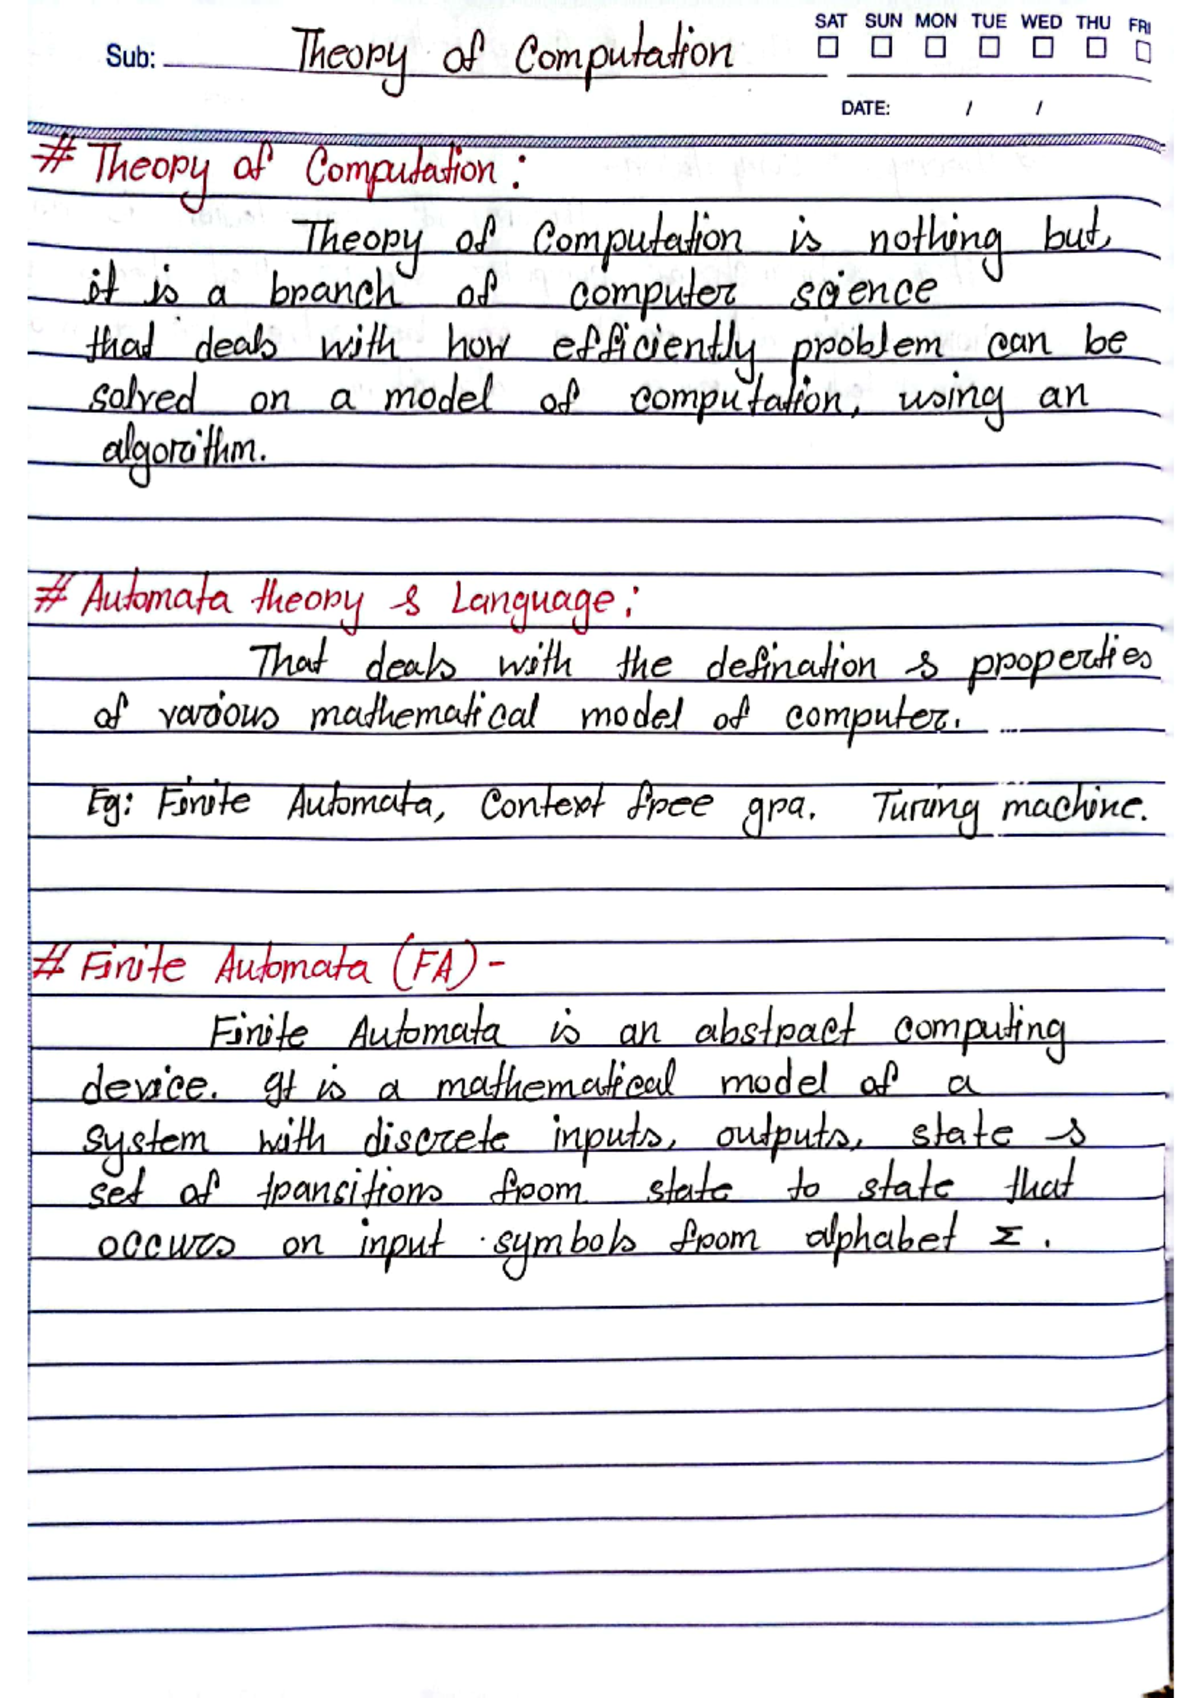 SAT SUN MON TUE WED THU FRI
Sub: Theory of Computation
DATE: / /
# Theory of Computation :
Theory of Computation is nothing but,
it is a branch of computer science
that deals with how efficiently problem can be
solved on a model of computation, using an
algorithm.
# Automata theory & Language :
That deals with the defination & properties
of various mathematical model of computer.
Eg: Finite Automata, Context free gra. Turing machine.
# Finite Automata (FA) -
Finite Automata is an abstract computing
device. It is a mathematical model of a
system with discrete inputs, outputs, state &
set of transitions from state to state that
occurs on input symbols from alphabet Σ.